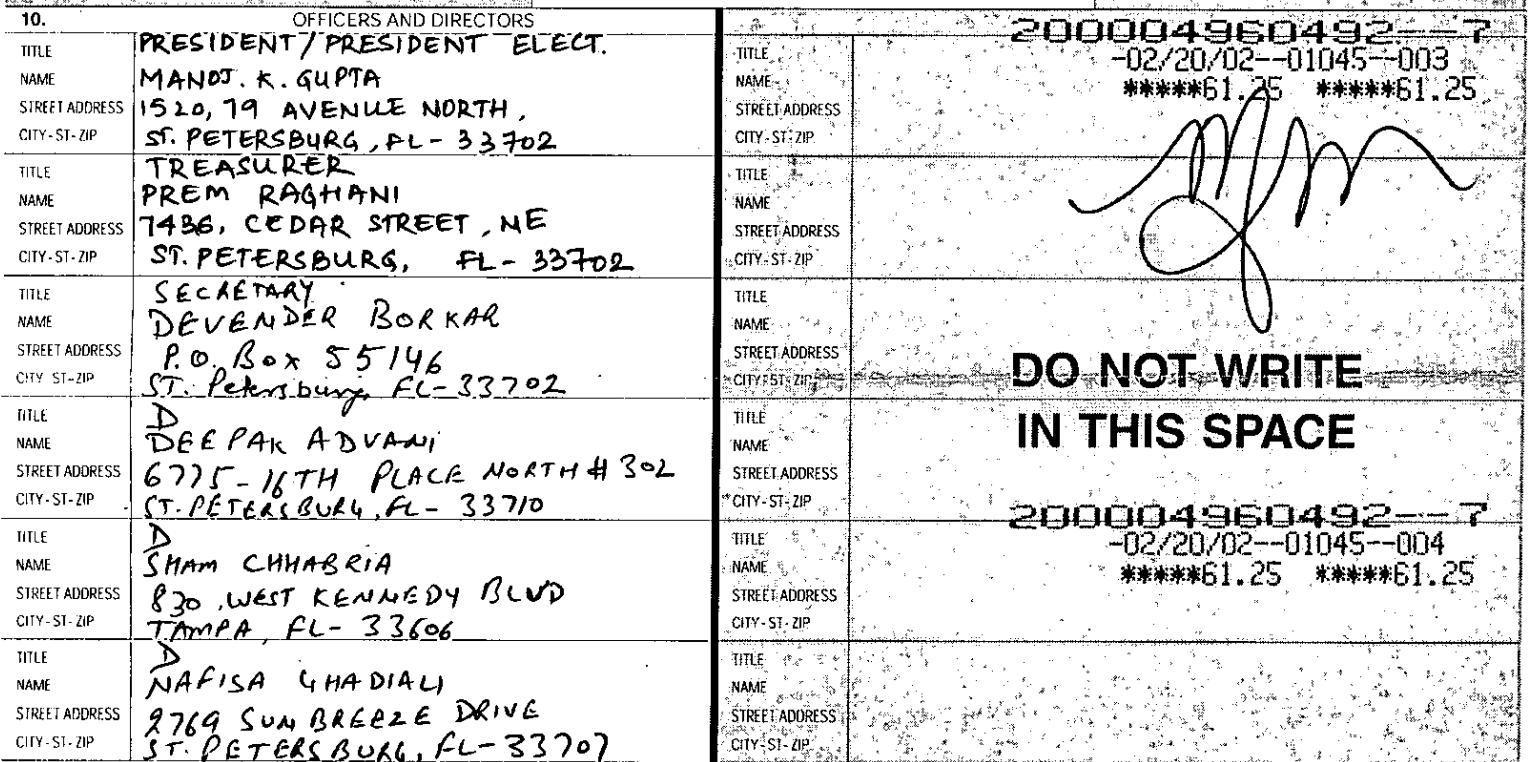 10. OFFICERS AND DIRECTORS
TITLE PRESIDENT/PRESIDENT ELECT.
NAME MANOJ. K. GUPTA
STREET ADDRESS 1520, 79 AVENUE NORTH,
CITY-ST-ZIP ST. PETERSBURG, FL-33702
TITLE TREASURER
NAME PREM RAGHANI
STREET ADDRESS 7436, CEDAR STREET, NE
CITY-ST-ZIP ST. PETERSBURG, FL-33702
TITLE SECRETARY
NAME DEVENDER BORKAR
STREET ADDRESS P.O. Box 55146
CITY ST-ZIP ST. Petersburg, FL-33702
TITLE D
NAME DEEPAK ADVANI
STREET ADDRESS 6775-16TH PLACE NORTH # 302
CITY-ST-ZIP ST. PETERSBURG, FL-33710
TITLE D
NAME SHAM CHHABRIA
STREET ADDRESS 830, WEST KENNEDY BLVD
CITY-ST-ZIP TAMPA, FL-33606
TITLE D
NAME NAFISA GHADIALI
STREET ADDRESS 2769 SUN BREEZE DRIVE
CITY-ST-ZIP ST. PETERSBURG, FL-33707
200004960492--7
TITLE -02/20/02--01045--003
NAME *****61.25 *****61.25
STREET ADDRESS
CITY-ST-ZIP
TITLE
NAME
STREET ADDRESS
CITY-ST-ZIP
TITLE
NAME
STREET ADDRESS
CITY-ST-ZIP
DO NOT WRITE
TITLE
IN THIS SPACE
NAME
STREET ADDRESS
CITY-ST-ZIP
200004960492--7
TITLE -02/20/02--01045--004
NAME *****61.25 *****61.25
STREET ADDRESS
CITY-ST-ZIP
TITLE
NAME
STREET ADDRESS
CITY-ST-ZIP